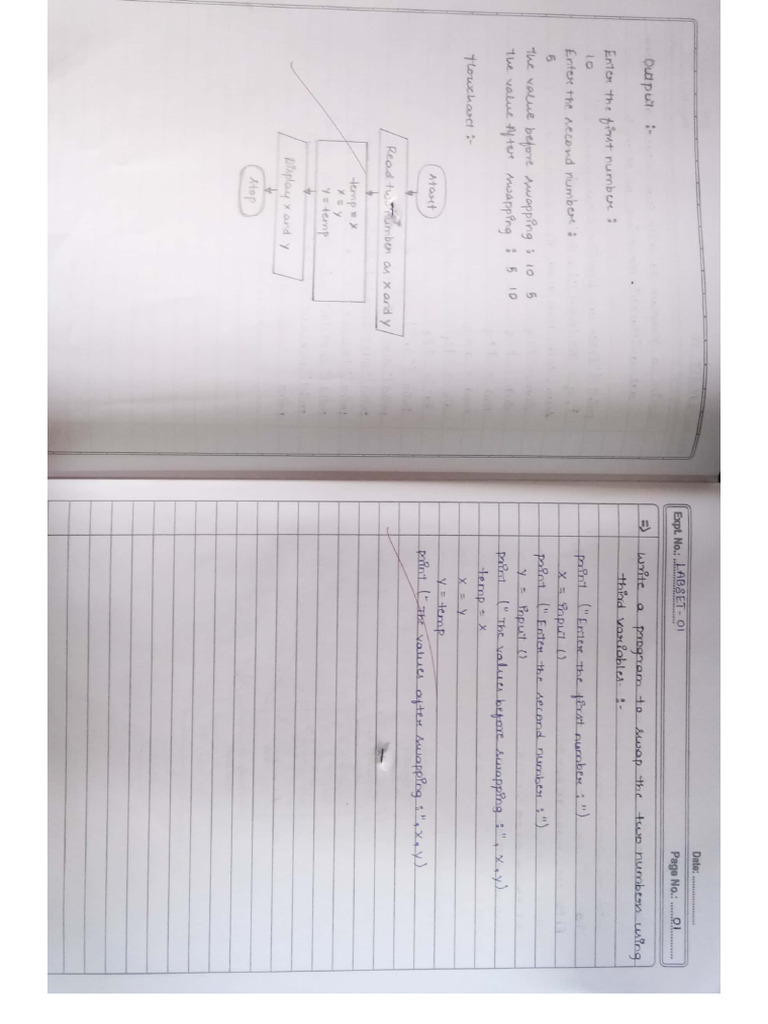 Output :-
Enter the first number :
10
Enter the second number :
5
The value before swapping : 10 5
The value After swapping : 5 10
Flowchart :-
Start
Read two number as x and y
temp = x
x = y
y = temp
Display x and y
Stop
Date: ....................
Expt. No.: LABSET - 01
Page No.: 01
=) Write a program to swap the two numbers using
third variables. :-
print ("Enter the first number :")
x = input ()
print ("Enter the second number :")
y = input ()
print ("The values before swapping :", x, y)
temp = x
x = y
y = temp
print ("The values after swapping :", x, y)